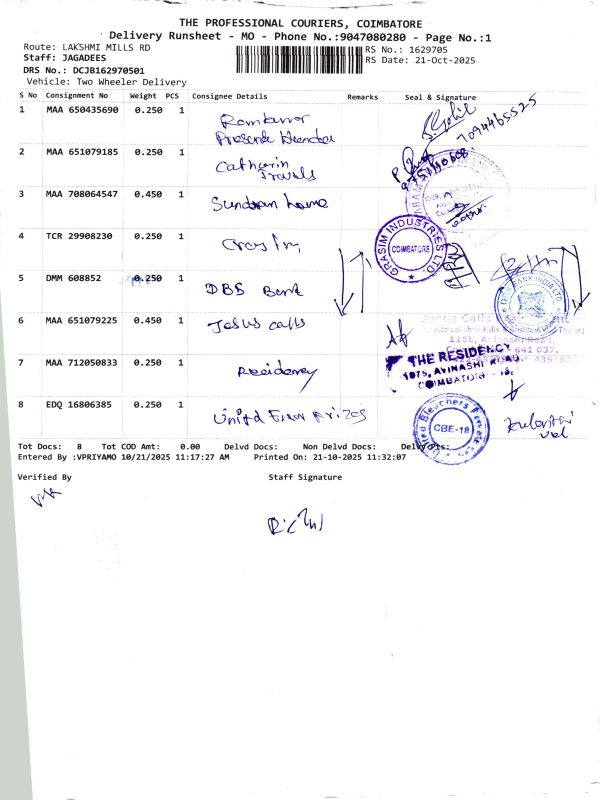 THE PROFESSIONAL COURIERS, COIMBATORE
Delivery Runsheet - MO - Phone No.:9047080280 - Page No.:1
Route: LAKSHMI MILLS RD
RS No.: 1629705
Staff: JAGADEES
RS Date: 21-Oct-2025
DRS No.: DCJB162970501
Vehicle: Two Wheeler Delivery
S No Consignment No Weight PCS Consignee Details Remarks Seal & Signature
1 MAA 650435690 0.250 1
7094465525
2 MAA 651079185 0.250 1 Catherin Travels
3 MAA 708064547 0.450 1 Sundram home
4 TCR 29908230 0.250 1
GRASIM INDUSTRIES LTD.
COIMBATORE
5 DMM 608852 0.250 1 DBS Bank
BANK INDIA LTD
6 MAA 651079225 0.450 1 Jesus calls
Jesus Calls
641 037.
7 MAA 712050833 0.250 1 Residency
THE RESIDENCY
1075, AVINASHI ROAD,
COIMBATORE - 18.
8 EDQ 16806385 0.250 1 United Enter prizes
United Bleachers Private Ltd
CBE-18
Tot Docs: 8 Tot COD Amt: 0.00 Delvd Docs: Non Delvd Docs: Delvy Pts:
Entered By :VPRIYAMO 10/21/2025 11:17:27 AM Printed On: 21-10-2025 11:32:07
Verified By Staff Signature